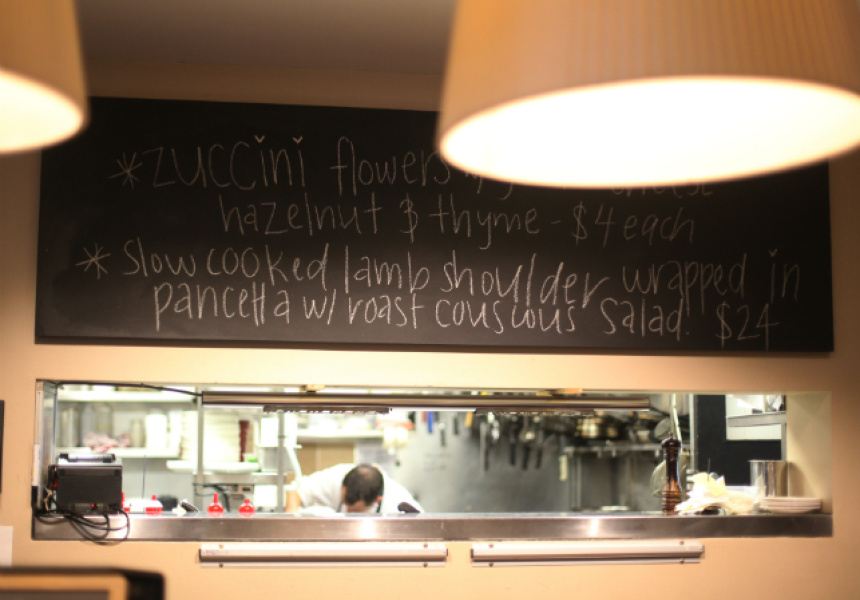 *zuccini flowers w/ cheese
hazelnut & thyme - $4 each
* Slow cooked lamb shoulder wrapped in
pancetta w/ roast couscous salad. $24